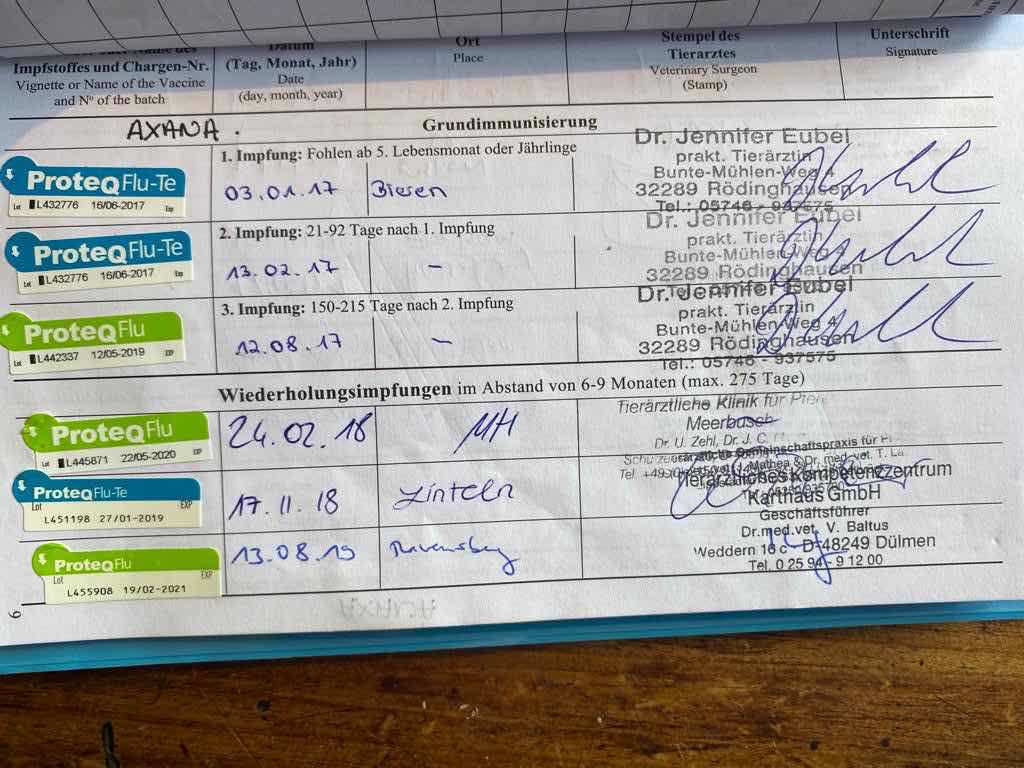 Impfstoffes und Chargen-Nr.
Vignette or Name of the Vaccine
and Nº of the batch
Datum
(Tag, Monat, Jahr)
Date
(day, month, year)
Ort
Place
Stempel des
Tierarztes
Veterinary Surgeon
(Stamp)
Unterschrift
Signature
AXANA.
Grundimmunisierung
ProteqFlu-Te
Lot L432776 16/06/2017 Exp
1. Impfung: Fohlen ab 5. Lebensmonat oder Jährlinge
03.01.17 Bieren
Dr. Jennifer Eubel
prakt. Tierärztin
Bunte-Mühlen-Weg 4
32289 Rödinghausen
Tel.: 05746 - 937575
ProteqFlu-Te
Lot L432776 16/06/2017 Exp
2. Impfung: 21-92 Tage nach 1. Impfung
13.02.17 -
Dr. Jennifer Eubel
prakt. Tierärztin
Bunte-Mühlen-Weg 4
32289 Rödinghausen
ProteqFlu
Lot L442337 12/05/2019 EXP
3. Impfung: 150-215 Tage nach 2. Impfung
12.08.17 -
Dr. Jennifer Eubel
prakt. Tierärztin
Bunte-Mühlen-Weg 4
32289 Rödinghausen
Tel.: 05746 - 937575
Wiederholungsimpfungen im Abstand von 6-9 Monaten (max. 275 Tage)
ProteqFlu
Lot L445871 22/05/2020 EXP
24.02.18 MH
Tierärztliche Klinik für
Meerbusch
Dr. U. Zehl, Dr. J. C.
ProteqFlu-Te
Lot EXP
L451198 27/01/2019
17.11.18
Gemeinschaftspraxis für
Mathea & Dr. med. vet. T.
ProteqFlu
Lot EXP
L455908 19/02/2021
13.08.19
Tierärztliches Kompetenzzentrum
Karthaus GmbH
Geschäftsführer
Dr.med.vet. V. Baltus
Weddern 16 c - D-48249 Dülmen
Tel. 0 25 94 - 9 12 00
9